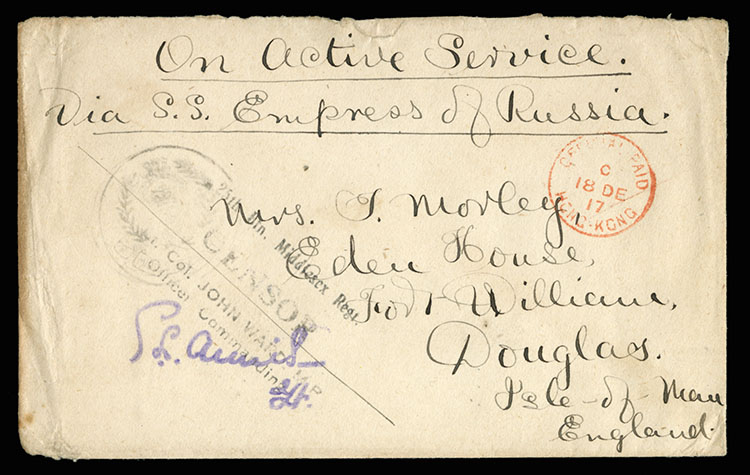 On Active Service.
Via S.S. Empress of Russia.
OFFICIAL PAID
C
18 DE
17
HONG-KONG
Mrs. J. Morley,
Eden House,
Fort William,
Douglas.
Isle-of-Man
England.
25th Bn. Middlesex Regt.
CENSOR
Lt. Col. JOHN WARD M.P.
Officer Commanding